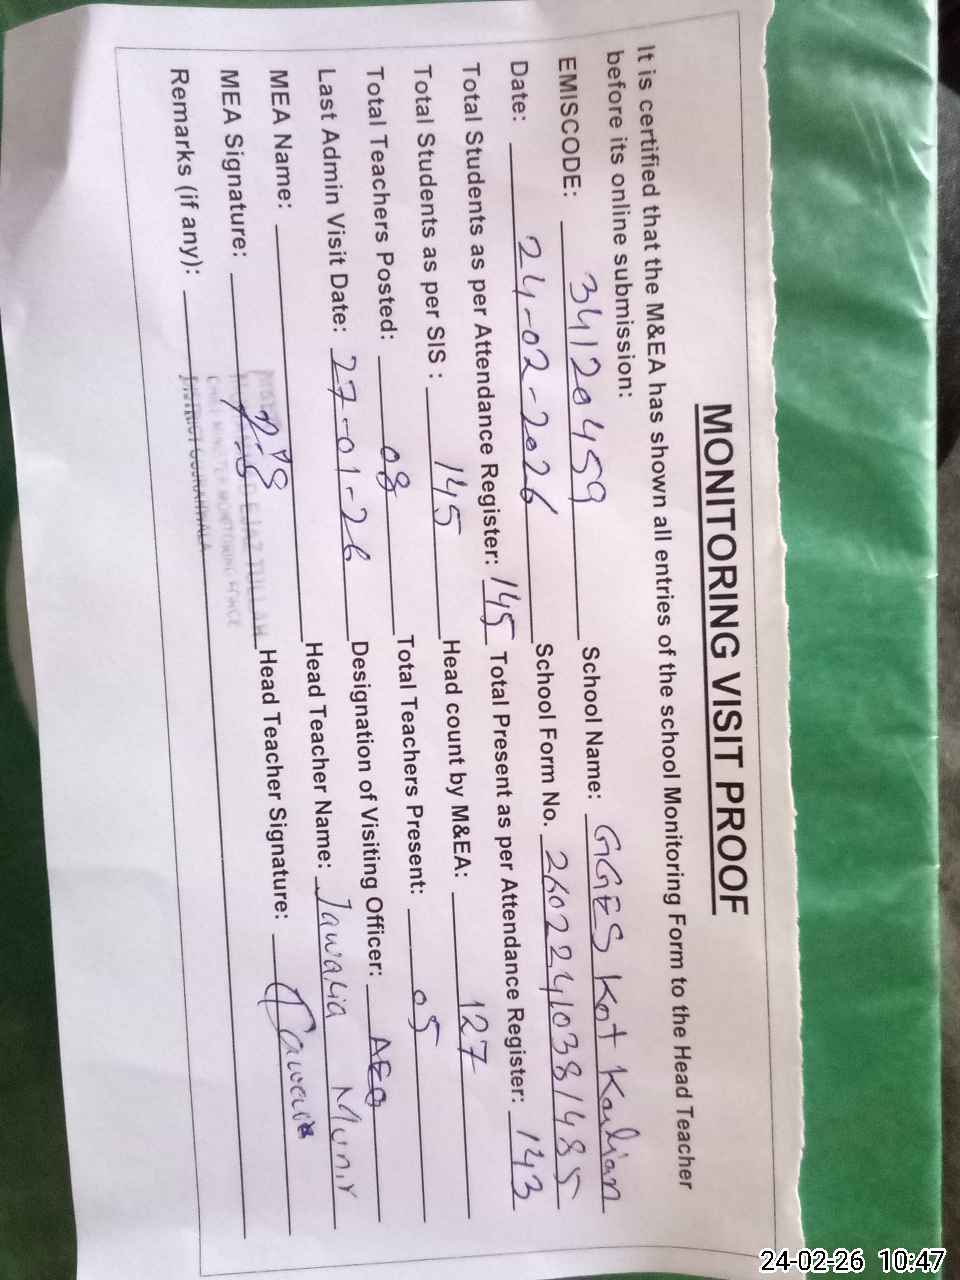 MONITORING VISIT PROOF
It is certified that the M&EA has shown all entries of the school Monitoring Form to the Head Teacher
before its online submission:
EMISCODE: 34120459 School Name: GGES Kot Karlian
Date: 24-02-2026 School Form No. 26022410381485
Total Students as per Attendance Register: 145 Total Present as per Attendance Register: 143
Total Students as per SIS : 145 Head count by M&EA: 127
Total Teachers Posted: 08 Total Teachers Present: 05
Last Admin Visit Date: 27-01-26 Designation of Visiting Officer: AEO
MEA Name: Head Teacher Name: Jawaria Munir
MEA Signature: Head Teacher Signature: Jawaria
Remarks (if any):
EJAZ TULLAH
CHIEF MINISTER MONITORING FORCE
DISTRICT GUJRANWALA
24-02-26 10:47